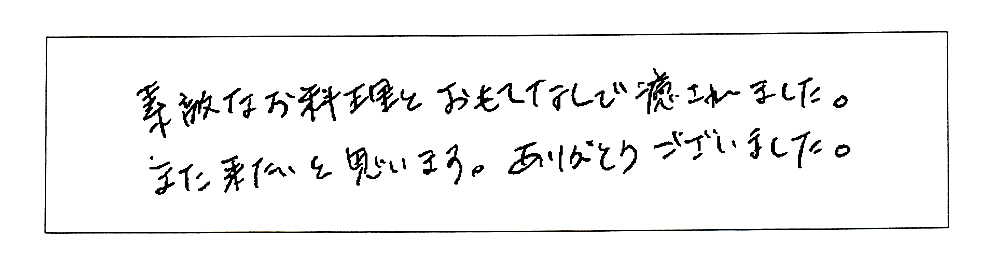 素敵なお料理とおもてなしで癒されました。
また来たいと思います。ありがとうございました。